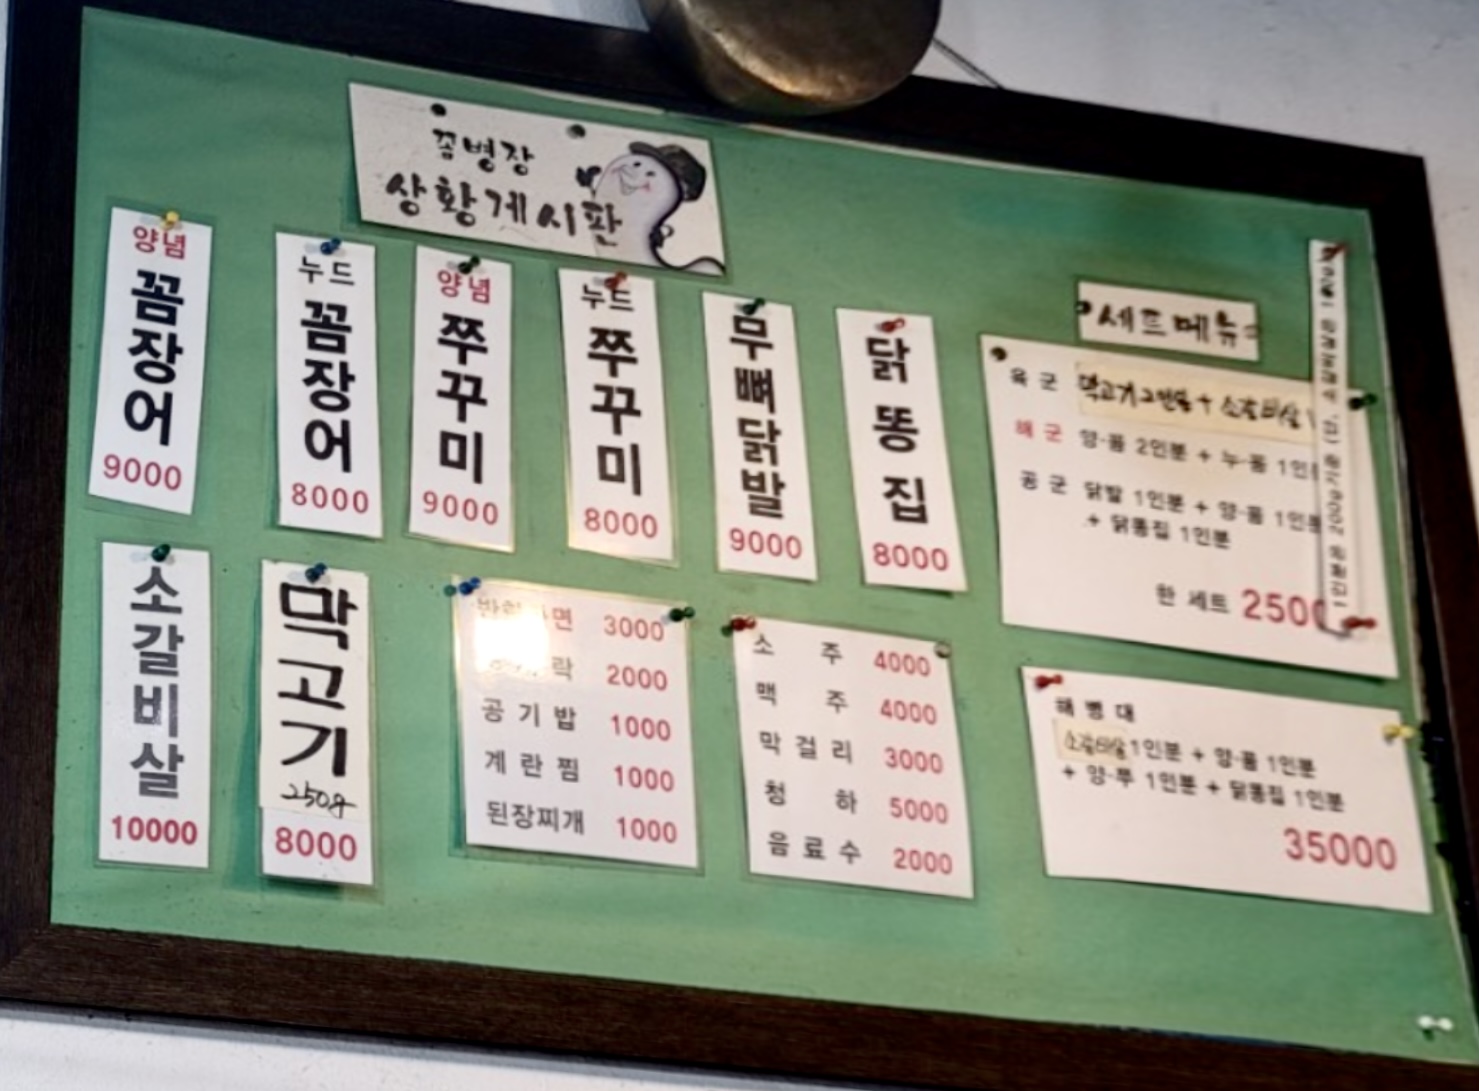 꼼병장
상황게시판
양념
꼼장어
9000
누드
꼼장어
8000
양념
쭈꾸미
9000
누드
쭈꾸미
8000
무뼈닭발
9000
닭똥집
8000
세트메뉴
육군 막고기 2인분 + 소갈비살 1
해군 양·꼼 2인분 + 누·꼼 1인
공군 닭발 1인분 + 양·꼼 1인분
+ 닭똥집 1인분
한 세트 2500
소갈비살
10000
막고기
250g
8000
면 3000
락 2000
공기밥 1000
계란찜 1000
된장찌개 1000
소주 4000
맥주 4000
막걸리 3000
청하 5000
음료수 2000
해병대
소갈비살 1인분 + 양·꼼 1인분
+ 양·쭈 1인분 + 닭똥집 1인분
35000